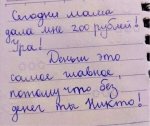 Сегодня мама
дала мне 200 рублей!
Ура!
Деньги это
самое главное,
потому что без
денег ты никто!